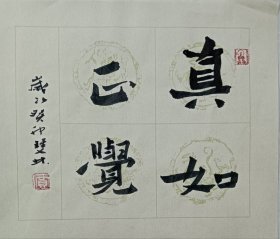 真如
正覺
歲次癸卯